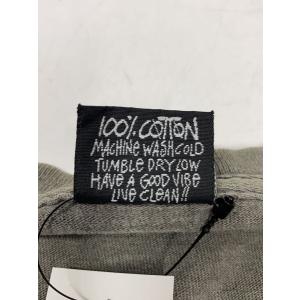 100% COTTON
MACHINE WASH COLD
TUMBLE DRY LOW
HAVE A GOOD VIBE
LIVE CLEAN!!